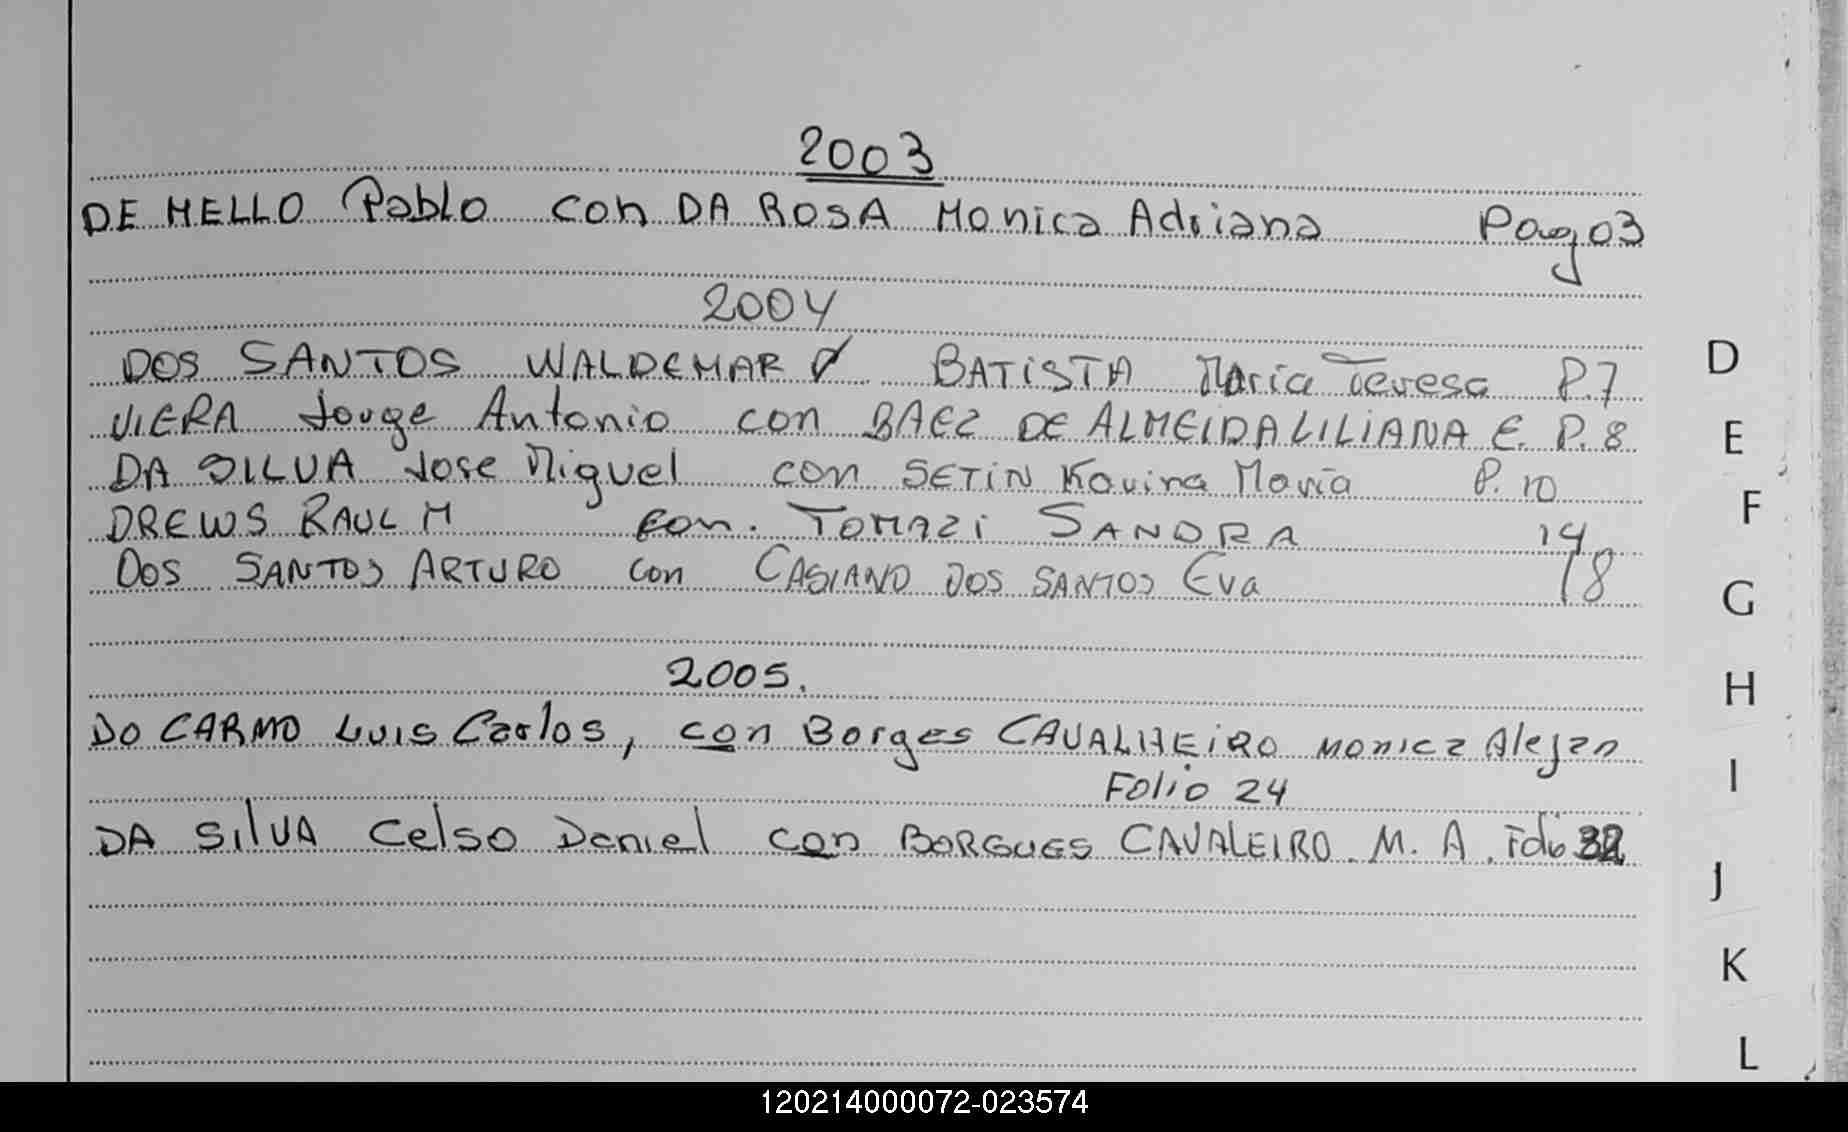 2003
DE MELLO Pablo con DA ROSA Monica Adriana Pag 03
2004
DOS SANTOS WALDEMAR BATISTA Maria Teresa P.7
VIERA Jorge Antonio con BAEZ DE ALMEIDA LILIANA E. P. 8
DA SILVA Jose Miguel con SETIN Karina Maria P. 10
DREWS RAUL M con. TOMAZI SANDRA 14
DOS SANTOS ARTURO con CASIANO DOS SANTOS Eva 18
2005.
DO CARMO Luis Carlos, con Borges CAVALHEiRO MONICA Alejan
Folio 24
DA SilVA Celso Daniel con BORGUES CAVALEIRO. M. A. Folio 32
D
E
F
G
H
I
J
K
L
120214000072-023574